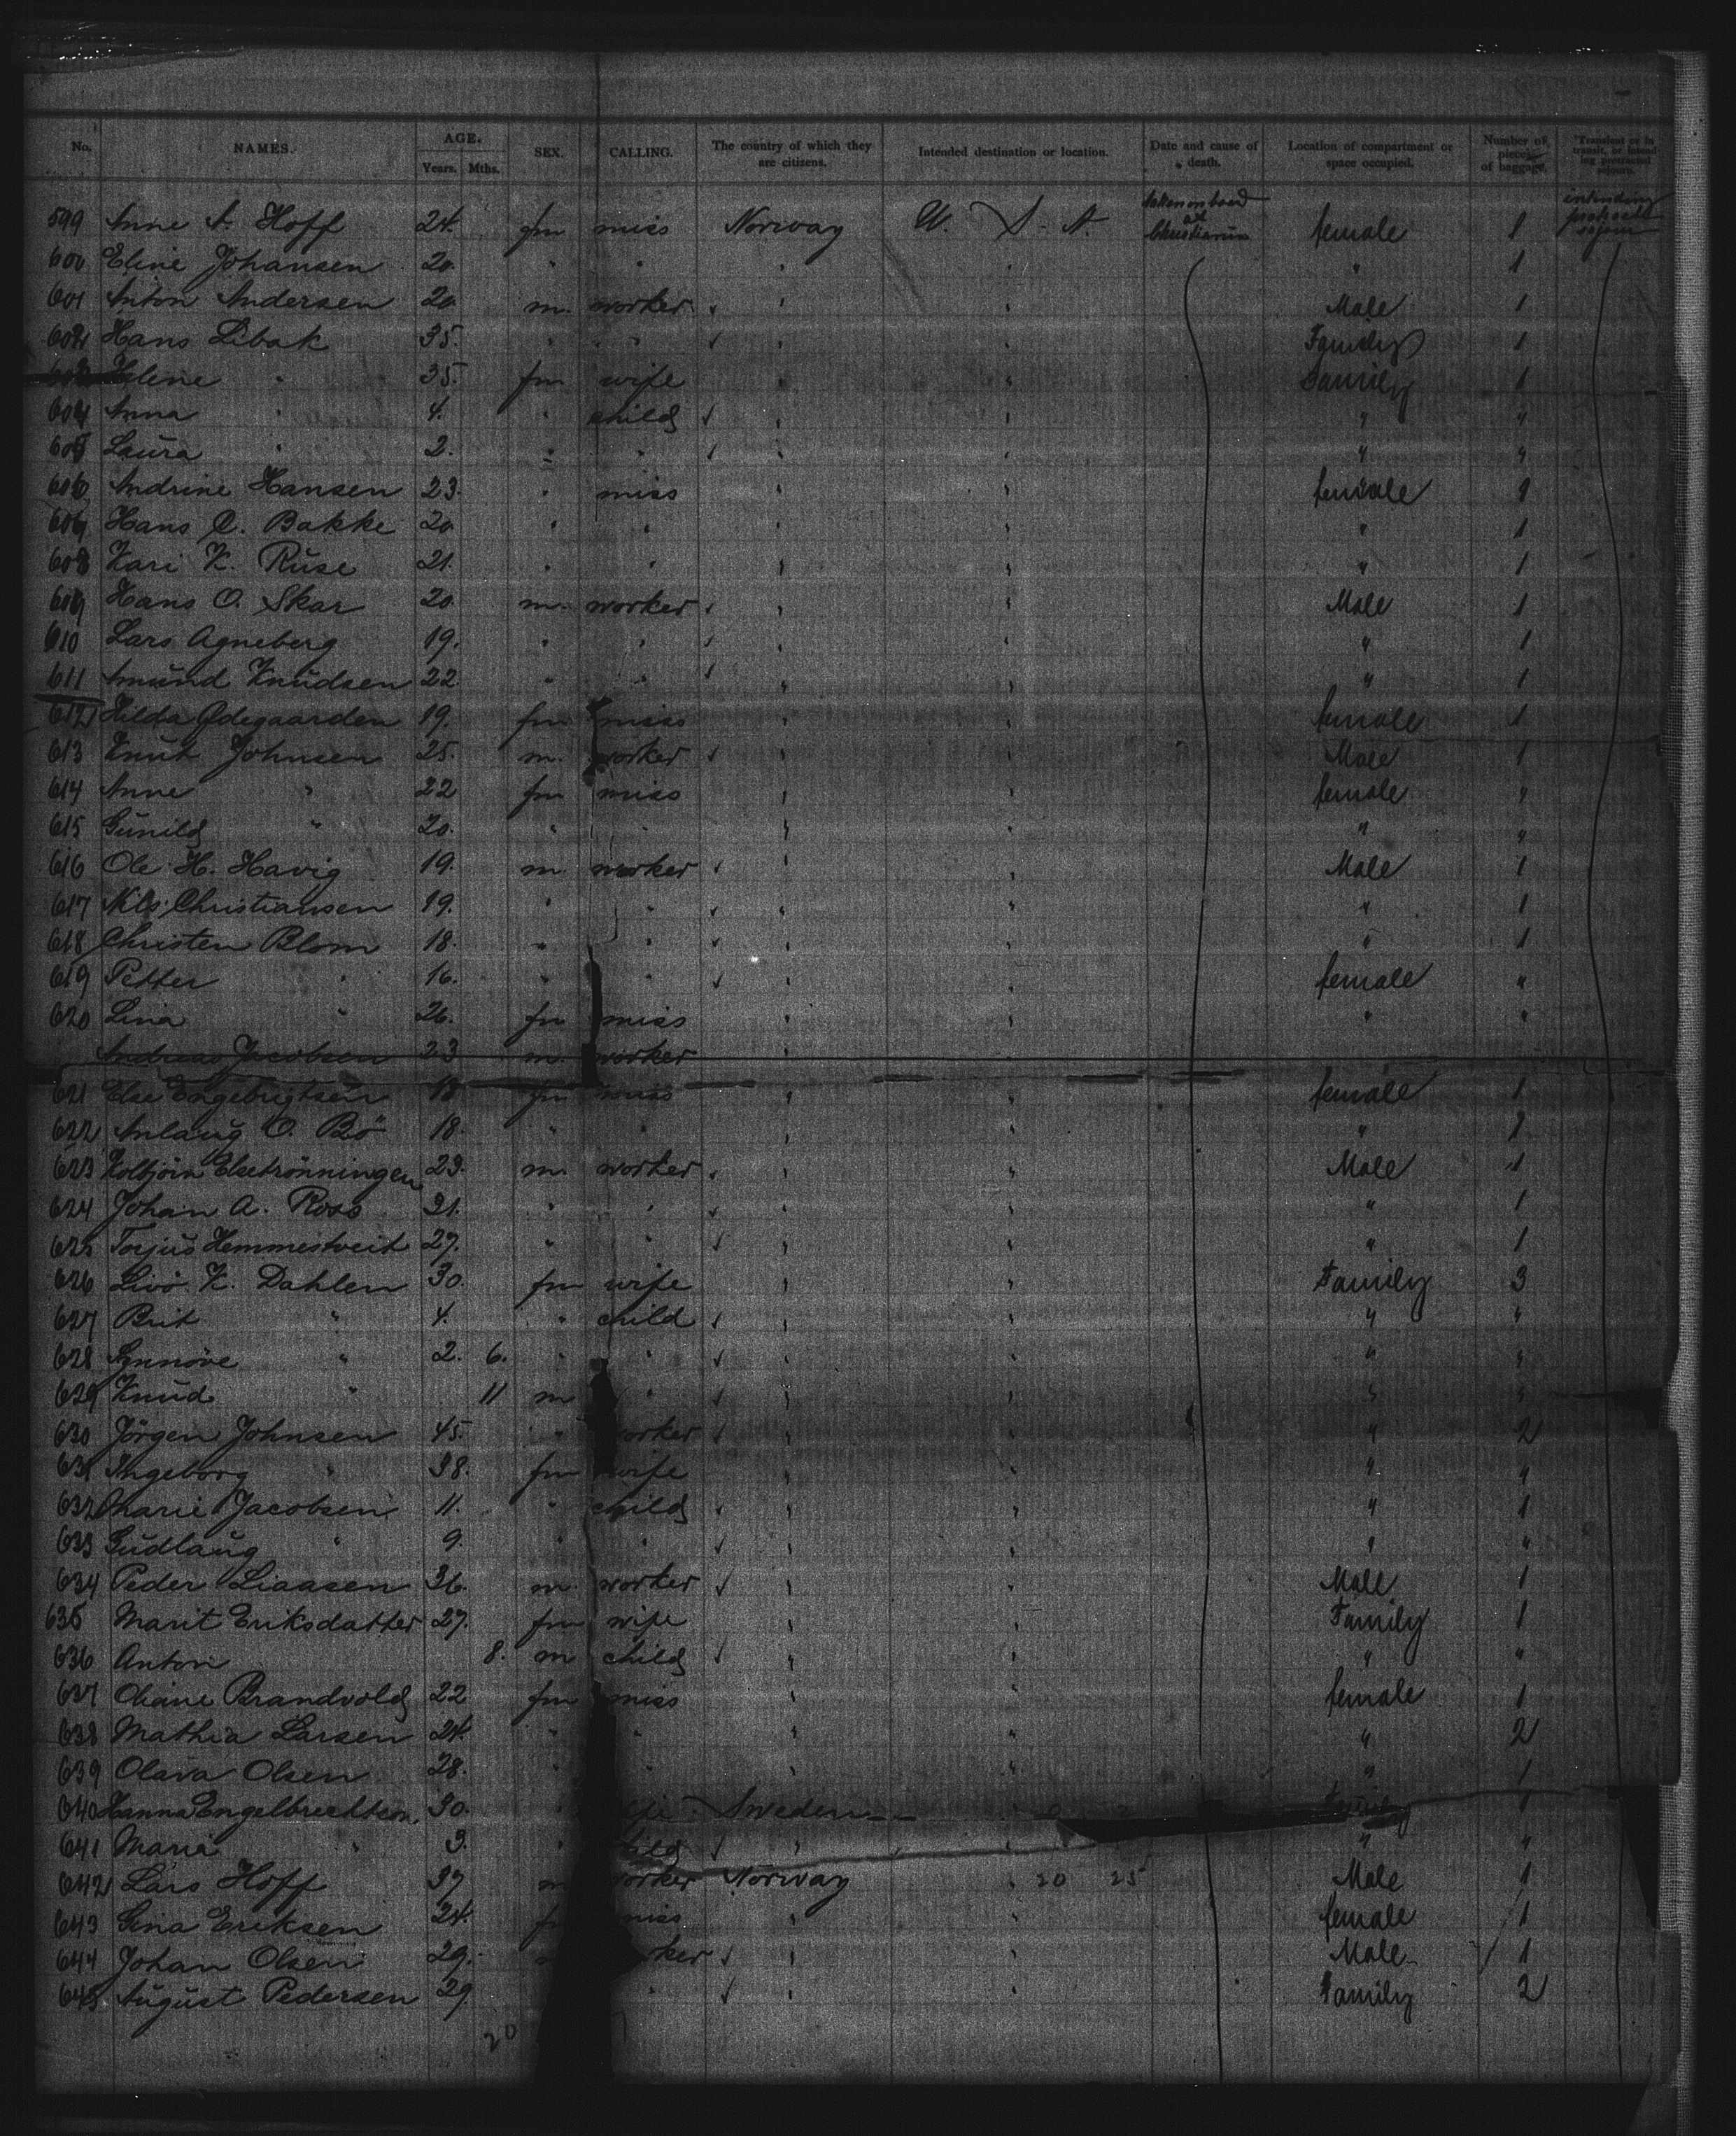 No. NAMES. AGE. Years. Mths. SEX. CALLING. The country of which they are citizens. Intended destination or location. Date and cause of death. Location of compartment or space occupied. Number of pieces of baggage. Transient or in transit, or intending protracted sejours.
599 Anne A. Hoff 24. fm miss Norway U. S. A. taken on board at Christiania female 1 intending sejour
600 Eline Johansen 20. " " " " " 1
601 Anton Andersen 20 m. worker " " Male 1
602 Hans Libak 35. " " " " Family 1
603 Helene " 35. fm wife " " Family 1
604 Anna " 4. " child " " " "
605 Laura " 2. " " " " " "
606 Andrine Hansen 23. " miss " " female 1
607 Hans C. Bakke 20 " " " " " 1
608 Kari K. Ruse 21. " " " " " 1
609 Hans O. Skar 20. m. worker " " Male 1
610 Lars Agneberg 19. " " " " " 1
611 Amund Knudsen 22 " " " " " 1
612 Hilda Ødegaarden 19. fm miss " " female 1
613 Knut Johnsen 25. m. worker " " Male 1
614 Anne " 22 fm miss " " female "
615 Gunild " 20. " " " " " "
616 Ole H. Havig 19. m worker " " Male 1
617 Nils Christiansen 19. " " " " " 1
618 Christen Blom 18. " " " " " 1
619 Petter " 16. " " " " female "
620 Lina " 26. fm miss " " " "
Andreas Jacobsen 23 m. worker "
621 Else Engebrigtsen 18 fm miss " " female 1
622 Anlaug O. Bö 18. " " " " " 1
623 Kolbjörn Elsetrönningen 23. m. worker " " Male 1
624 Johan A. Ross 31. " " " " " 1
625 Torjus Hemmestveit 27. " " " " " 1
626 Livö K. Dahlen 30. fm wife " " Family 3
627 Brit " 4. " child " " " "
628 Synnöve " 2. 6. " " " " " "
629 Knud " 11 m " " " " "
630 Jörgen Johnsen 45. " worker " " " 2
631 Ingeborg " 38. fm wife " " " "
632 Marie Jacobsen 11. " child " " " 1
633 Gudlaug " 9. " " " " " "
634 Peder Liaasen 36. m. worker " " Male 1
635 Marit Eriksdatter 27. fm wife " " Family 1
636 Anton 8. m child " " " "
637 Oliane Brandvold 22 fm miss " " female 1
638 Mathia Larsen 24. " " " " " 2
639 Olava Olsen 28. " " " " " 1
640 Hanna Engelbrechtson 30. Sweden Family 1
641 Maria " 3. " child " " " "
642 Lars Hoff 37 m worker Norway " 20 25 Male 1
643 Gina Eriksen 24. fm miss " " female 1
644 Johan Olsen 29. worker " " Male 1
645 August Pedersen 29 " " " Family 2
20